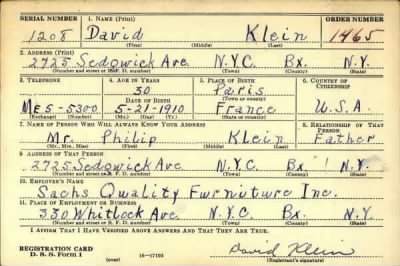 SERIAL NUMBER 1. NAME (Print) ORDER NUMBER
1208 David Klein 1465
(First) (Middle) (Last)
2. ADDRESS (Print)
2725 Sedgwick Ave. N.Y.C. Bx. N.Y.
(Number and street or R.F.D. number) (Town) (County) (State)
3. TELEPHONE 4. AGE IN YEARS 5. PLACE OF BIRTH 6. COUNTRY OF CITIZENSHIP
30 Paris
DATE OF BIRTH (Town or county)
ME5-5300 5-21-1910 France U.S.A.
(Exchange) (Number) (Mo.) (Day) (Yr.) (State or country)
7. NAME OF PERSON WHO WILL ALWAYS KNOW YOUR ADDRESS 8. RELATIONSHIP OF THAT PERSON
Mr. Philip Klein Father
(Mr., Mrs., Miss) (First) (Middle) (Last)
9. ADDRESS OF THAT PERSON
2725 Sedgwick Ave N.Y.C. Bx. N.Y.
(Number and street or R. F. D. number) (Town) (County) (State)
10. EMPLOYER'S NAME
Sachs Quality Furniture Inc.
11. PLACE OF EMPLOYMENT OR BUSINESS
550 Whitlock Ave. N.Y.C. Bx. N.Y.
(Number and street or R. F. D. number) (Town) (County) (State)
I AFFIRM THAT I HAVE VERIFIED ABOVE ANSWERS AND THAT THEY ARE TRUE.
REGISTRATION CARD
D. S. S. Form 1 (over) 16-17105 David Klein
(Registrant's signature)